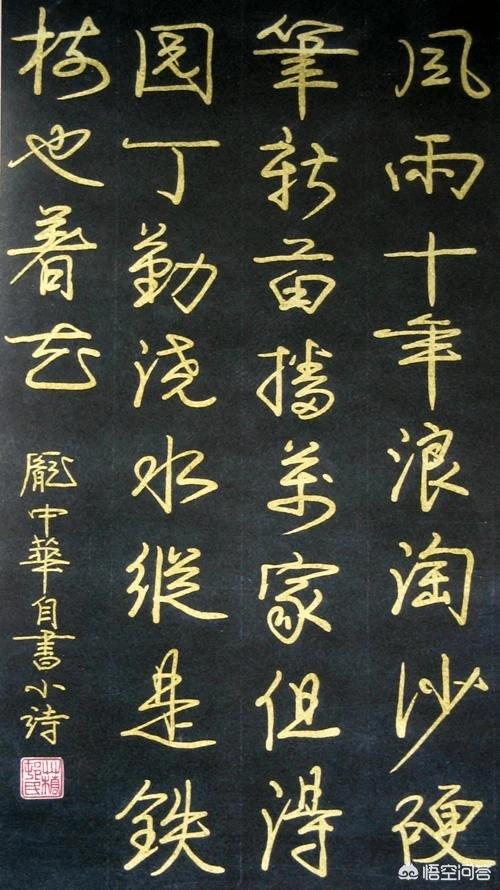 風雨十年浪淘沙硬
筆新苗播萬家但得
园丁勤浇水縱是鉄
树也着花
龐中華自書小詩
悟空问答